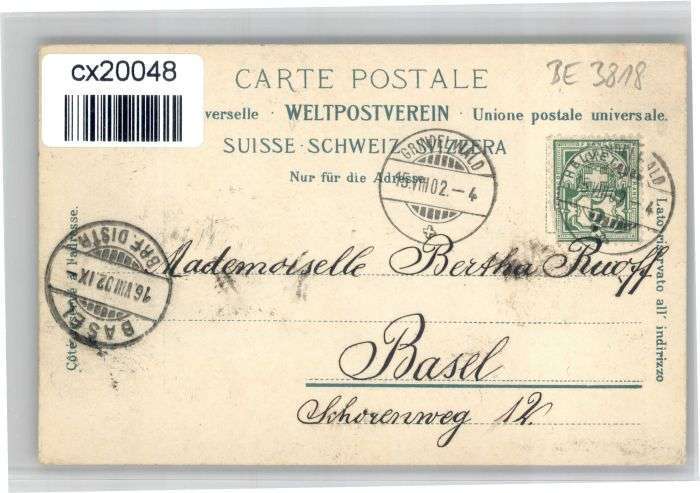 cx20048
BE 3818
CARTE POSTALE
verselle · WELTPOSTVEREIN · Unione postale universale.
SUISSE · SCHWEIZ · SVIZZERA
Nur für die Adresse.
GRINDELWALD
15.VIII 02.–4
HELVETIA
Côté réservé à l'adresse.
Lato riservato all' indirizzo
BASEL
16.VIII.02.IX
BRF. DISTR.
Mademoiselle Bertha Ruoff
Basel
Schorenweg 12.